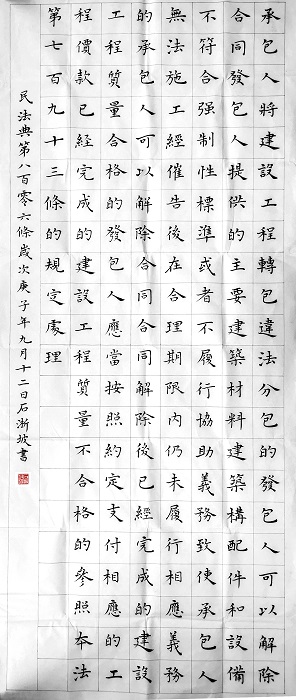 承包人將建設工程轉包違法分包的發包人可以解除
合同發包人提供的主要建築材料建築構配件和設備
不符合强制性標準或者不履行協助義務致使承包人
無法施工經催告後在合理期限内仍未履行相應義務
的承包人可以解除合同合同解除後已經完成的建設
工程質量合格的發包人應當按照約定支付相應的工
程價款已經完成的建設工程質量不合格的參照本法
第七百九十三條的規定處理
民法典第八百零六條歲次庚子年九月十二日石漸坡書